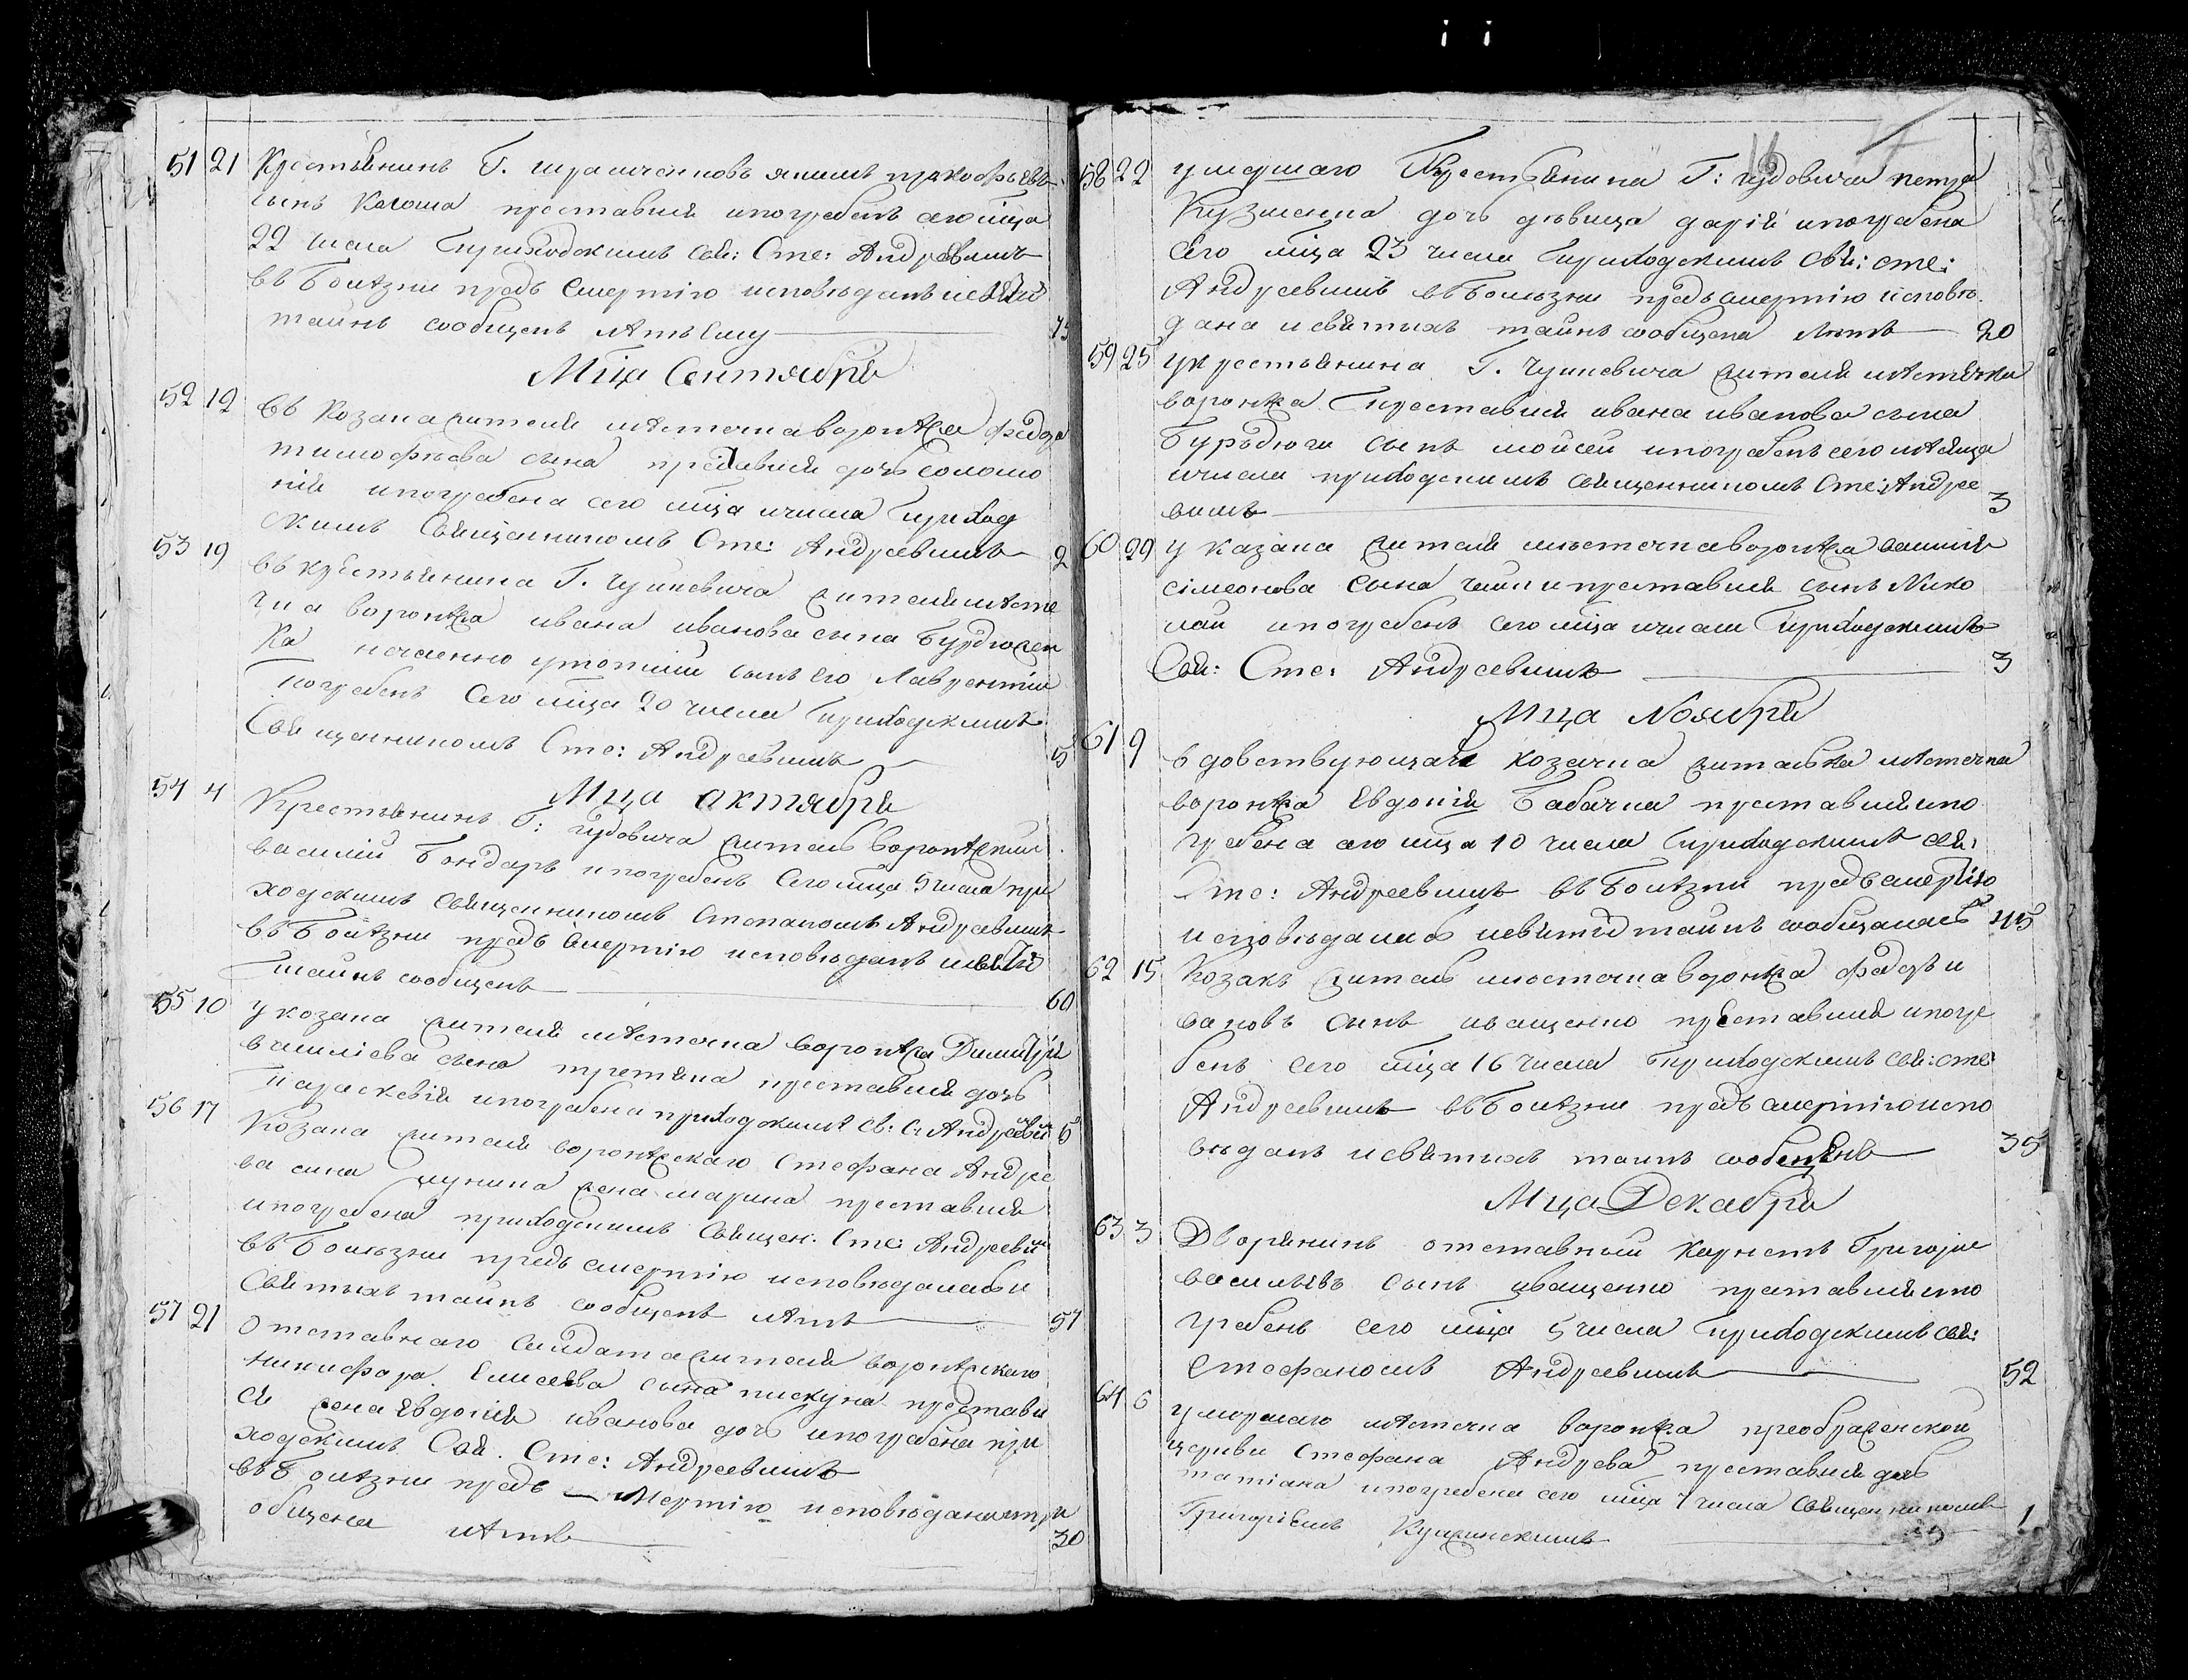 51 21 Крестьянинъ Г. Якимъ прокофьевъ
сынъ преставися ипогребенъ сего мца
22 числа приходскимъ Свя: Сте: Андреевимъ
въ Болѣзни предъ Смертію исповѣданъ исвятй
таинъ сообщенъ лѣтъ Ему
Мца Сентября
52 12 въ Козака жителя мѣстечка воронжа федора
тимофѣева сына преставися дочь соломо
нія ипогребена сего мца ичисла приход
скимъ Священникомъ Сте: Андреевимъ 2
53 19 въ крестьянина Г. жителя мѣсте
чка воронжа ивана иванова сына Бурдюжен
ка нечаенно утопшій сынъ его Лаврентій
погребенъ Сего мца 20 числа приходскимъ
Священникомъ Сте: Андреевимъ 5
Мца октября
54 4 Крестьянинъ Г: Гудовича житель воронжский
василий Бондарь ипогребенъ Сего мца 5 числа при
ходскимъ Священникомъ Степаномъ Андреевимъ
въ Болѣзни предъ Смертію исповѣданъ исвятй
таинъ сообщенъ 60
55 10 у козака жителя мѣстечка воронжа Димитрія
василіева сына третяка преставися дочь
параскевія ипогребена приходскимъ Св: Ст Андреевим 6
56 17 Козака жителя воронжскаго Стефана Андре
ва сина жена марина преставися
ипогребена приходскимъ Священ: Сте: Андреевим
въ Болѣзни предъ смертію исповѣдалась и
Святыхъ таинъ сообщенъ лѣтъ 57
57 21 Отставнаго Салдата жителя воронжскаго
никифора Елисеева сына пискуна преставы
ся жена Евдокия иванова дочь ипогребена при
ходскимъ Свя. Сте: Андреевимъ
въ Болѣзни предъ Смертію исповѣдана
общена лѣтъ 30
58 22 умершаго Крестьянина Г: Гудовича петра
Кузменка дочь дѣвица дарія ипогребена
Сего мца 23 числа приходскимъ Свя: сте:
Андреевимъ въ болѣзни предъ смертію исповѣ
дана исвятыхъ таинъ сообщена лѣтъ 20
59 25 у крестьянина Г. жителя мѣстечка
воронжа преставися ивана иванова сына
сынъ моисей ипогребенъ сего мѣсяца
ичисла приходскимъ священникомъ Сте: Андрее
вимъ 3
60 29 у казака жителя мѣстечка воронжа
сімеонова сына преставися сынъ Нико
лай ипогребенъ сего мца ичисла приходскимъ
Свя: Сте: Андреевимъ 3
Мца Ноября
61 9 вдовствующая козачка жителька мѣстечка
воронжа Евдокія Бабачка преставися ипо
гребена сего мца 10 числа приходскимъ свя:
Сте: Андреевимъ въ Болѣзни предъ смертію
исповѣдалась исвятй таинъ сообщалась 45
62 15 Козакъ житель мѣстечка воронжа федоръ и
вановъ сынъ иващенко преставися ипогре
бенъ сего мца 16 числа приходскимъ свя: сте:
Андреевимъ въ Болѣзни предъ смертію испо
вѣданъ исвятихъ таинъ сообщенъ 35
Мца Декабря
63 3 Дворянинъ отставный Корнетъ Григорие
васильевъ сынъ иващенко преставися ипо
гребенъ сего мца 5 числа приходскимъ свя:
Стефаномъ Андреевимъ 52
64 6 умершаго мѣстечка воронжа преображенской
церкви Стефана Андрева преставися дочь
татіана ипогребена сего мца 7 числа Священникомъ
Григоріемъ 1